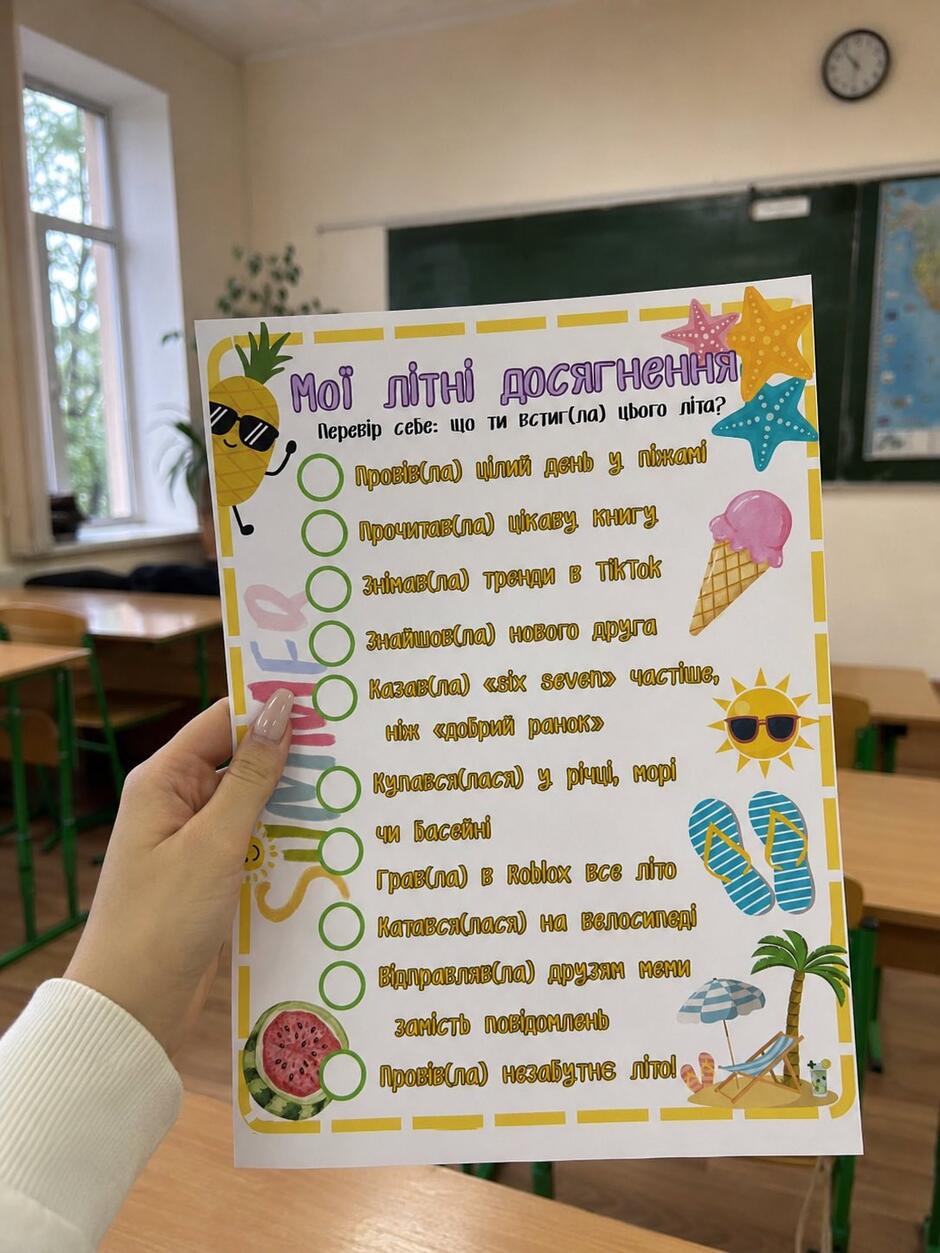 Мої літні досягнення
Перевір себе: що ти встиг(ла) цього літа?
Провів(ла) цілий день у піжамі
Прочитав(ла) цікаву книгу
Знімав(ла) тренди в TikTok
Знайшов(ла) нового друга
Казав(ла) «six seven» частіше,
ніж «добрий ранок»
Купався(лася) у річці, морі
чи басейні
Грав(ла) в Roblox все літо
Катався(лася) на велосипеді
Відправляв(ла) друзям меми
замість повідомлень
Провів(ла) незабутнє літо!
SUMMER